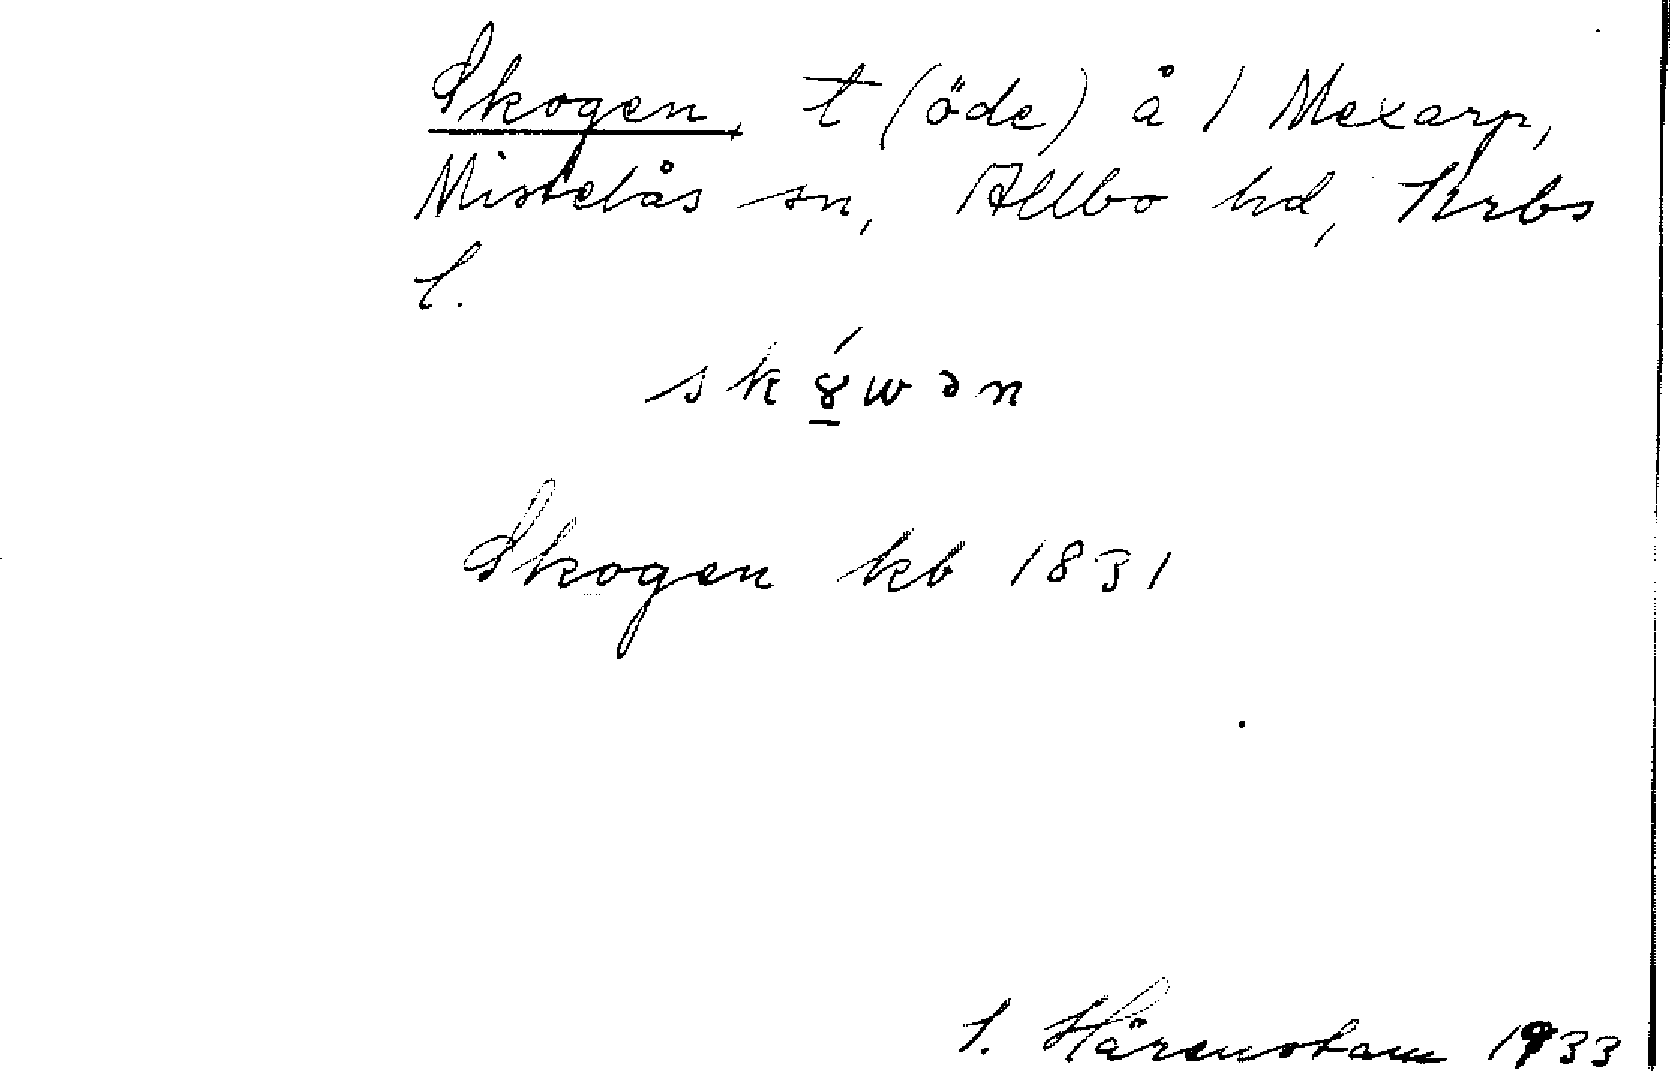 Skogen, t (öde) å 1 Mexarp,
Mistelås sn, Allbo hd, Krbs
l.
sk8́wən
Skogen kb 1831
S. Härenstam 1933